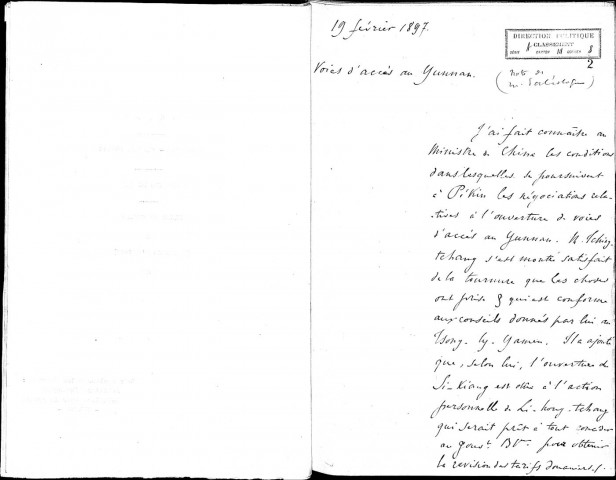 19 février 1897.
DIRECTION POLITIQUE
CLASSEMENT
2
Voies d'accès au Yunnan.
(Note de
M.
J'ai fait connaître au
Ministre de Chine les conditions
dans lesquelles se poursuivent
à Pékin les négociations rela-
-tives à l'ouverture de voies
d'accès au Yunnan. M. Tching-
tchang s'est montré satisfait
de la tournure que les choses
ont prise & qui est conforme
aux conseils donnés par lui au
Tsong-ly-Yamen. Il a ajouté
que, selon lui, l'ouverture du
Si-Kiang est due à l'action
personnelle de Li-hong-tchang
qui serait prêt à tout concéder
au gouvt. Bque. pour obtenir
la revision des tarifs douaniers.